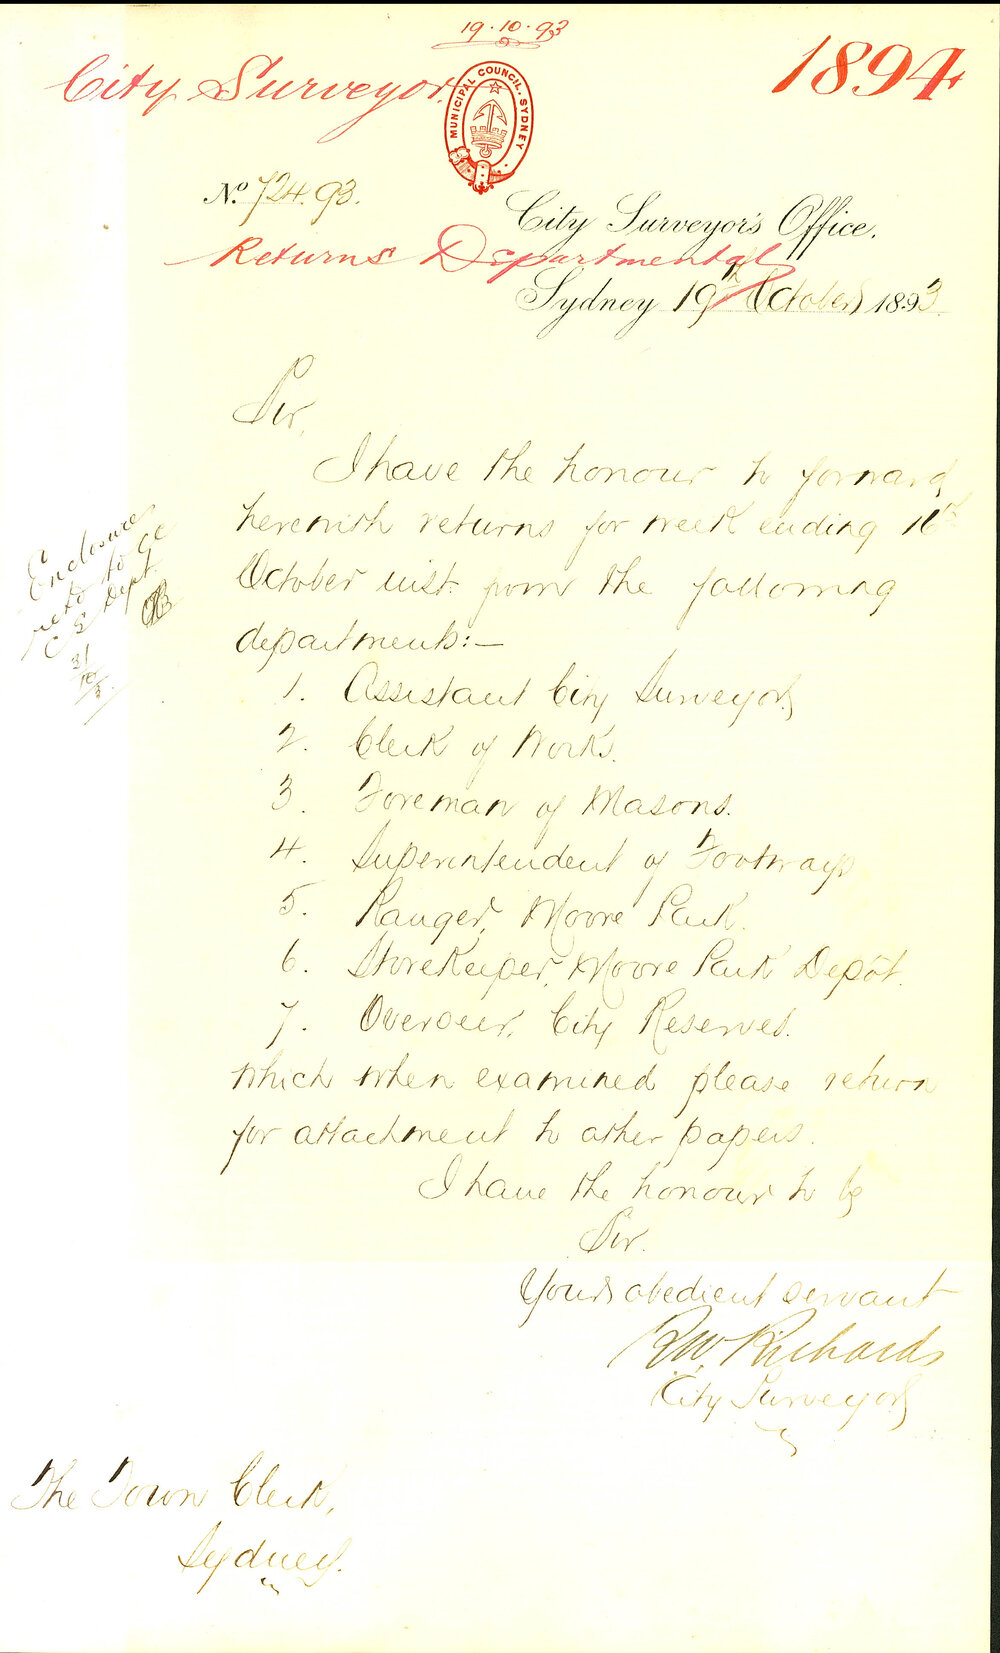 19.10.93
City Surveyor.
1894
MUNICIPAL COUNCIL. SYDNEY
No. 724.93.
City Surveyor's Office.
Returns Departmental
Sydney 19th October 1893
Sir,
I have the honour to forward
herewith returns for week ending 16th
October inst. from the following
departments:—
1. Assistant City Surveyor,
2. Clerk of Works.
3. Foreman of Masons.
4. Superintendent of Footways
5. Ranger, Moore Park.
6. Storekeeper, Moore Park Depôt.
7. Overseer, City Reserves.
which when examined please return
for attachment to other papers.
I have the honour to be
Sir.
Your obedient servant
R W. Richards
City Surveyor
The Town Clerk,
Sydney.
Enclosures
retd to
C S Dept.
31/10/3.